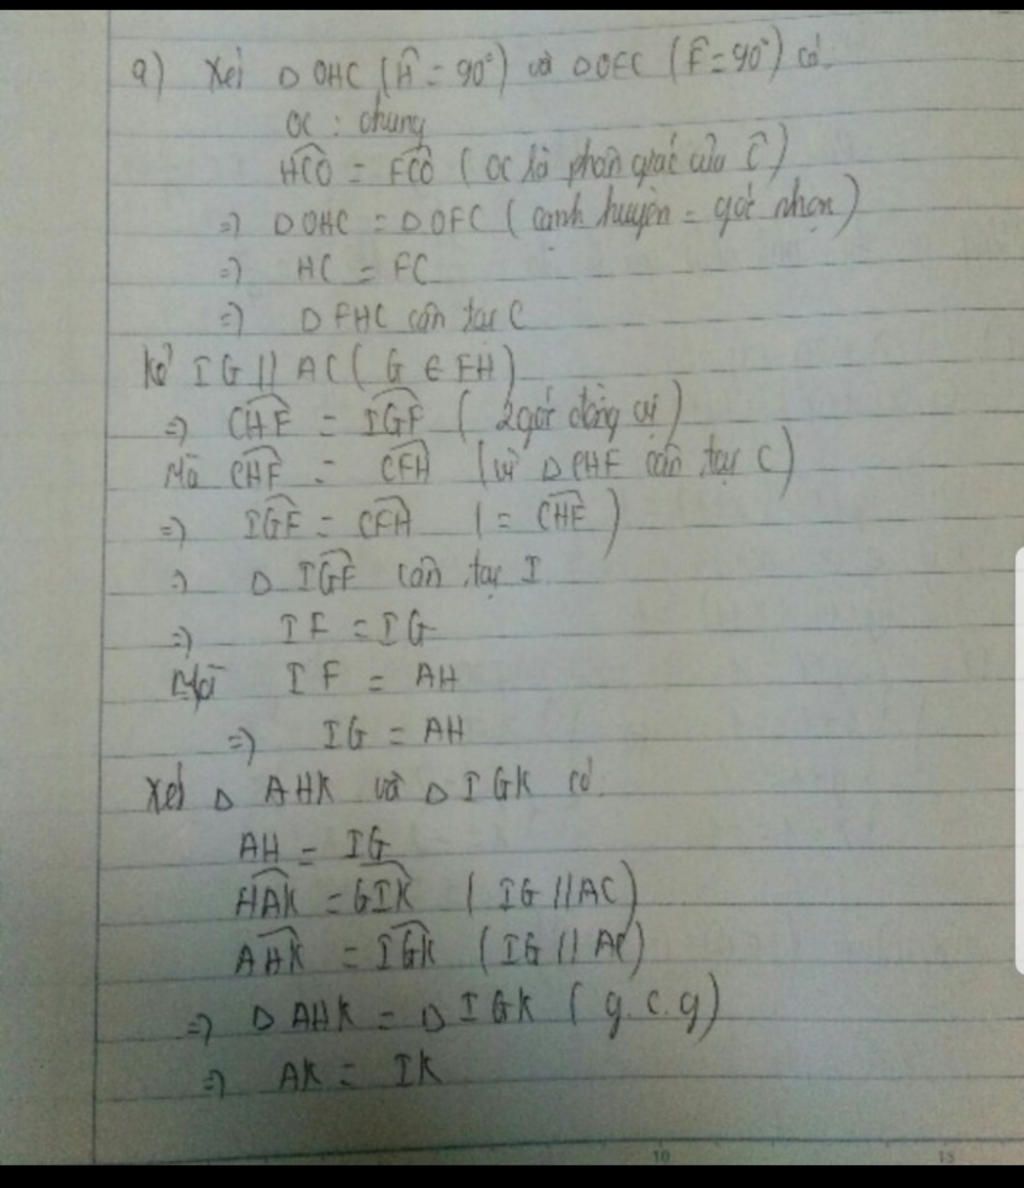 a) Xét Δ OHC (Ĥ = 90°) và Δ OFC (F̂ = 90°) có.
OC : chung
HCO = FCO ( OC là phân giác của Ĉ )
=) Δ OHC = Δ OFC ( cạnh huyện = góc nhọn )
=) HC = FC
=) Δ FHC cân tại C
Kẻ IG // AC ( G ∈ FH )
=) CHF = IGF ( 2 góc đồng vị )
Mà CHF = CFH ( vì Δ CHF cân tại C )
=) IGF = CFH ( = CHF )
=) Δ IGF cân tại I
=) IF = IG
Mà IF = AH
=) IG = AH
Xét Δ AHK và Δ IGK có.
AH = IG
HAK = GIK ( IG // AC )
AHK = IGK ( IG // AC )
=) Δ AHK = Δ IGK ( g.c.g )
=) AK = IK
10 15